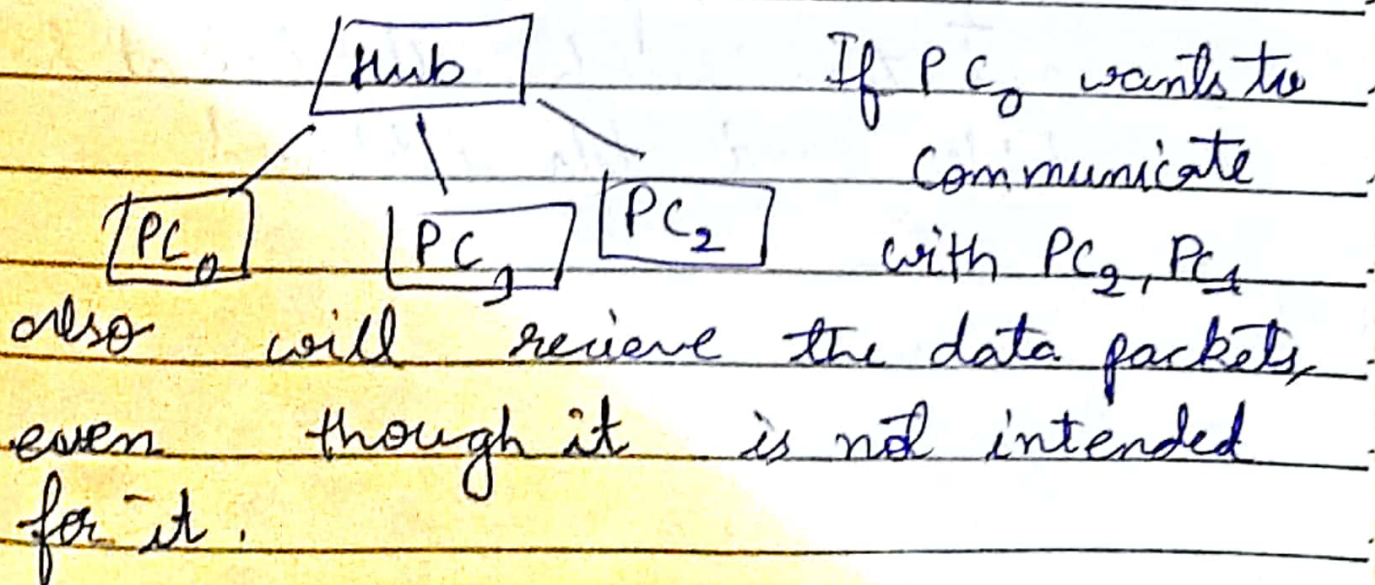 Hub
If PC0 wants to
communicate
PC0 PC1 PC2
with PC2, PC1
also will recieve the data packets,
even though it is not intended
for it.